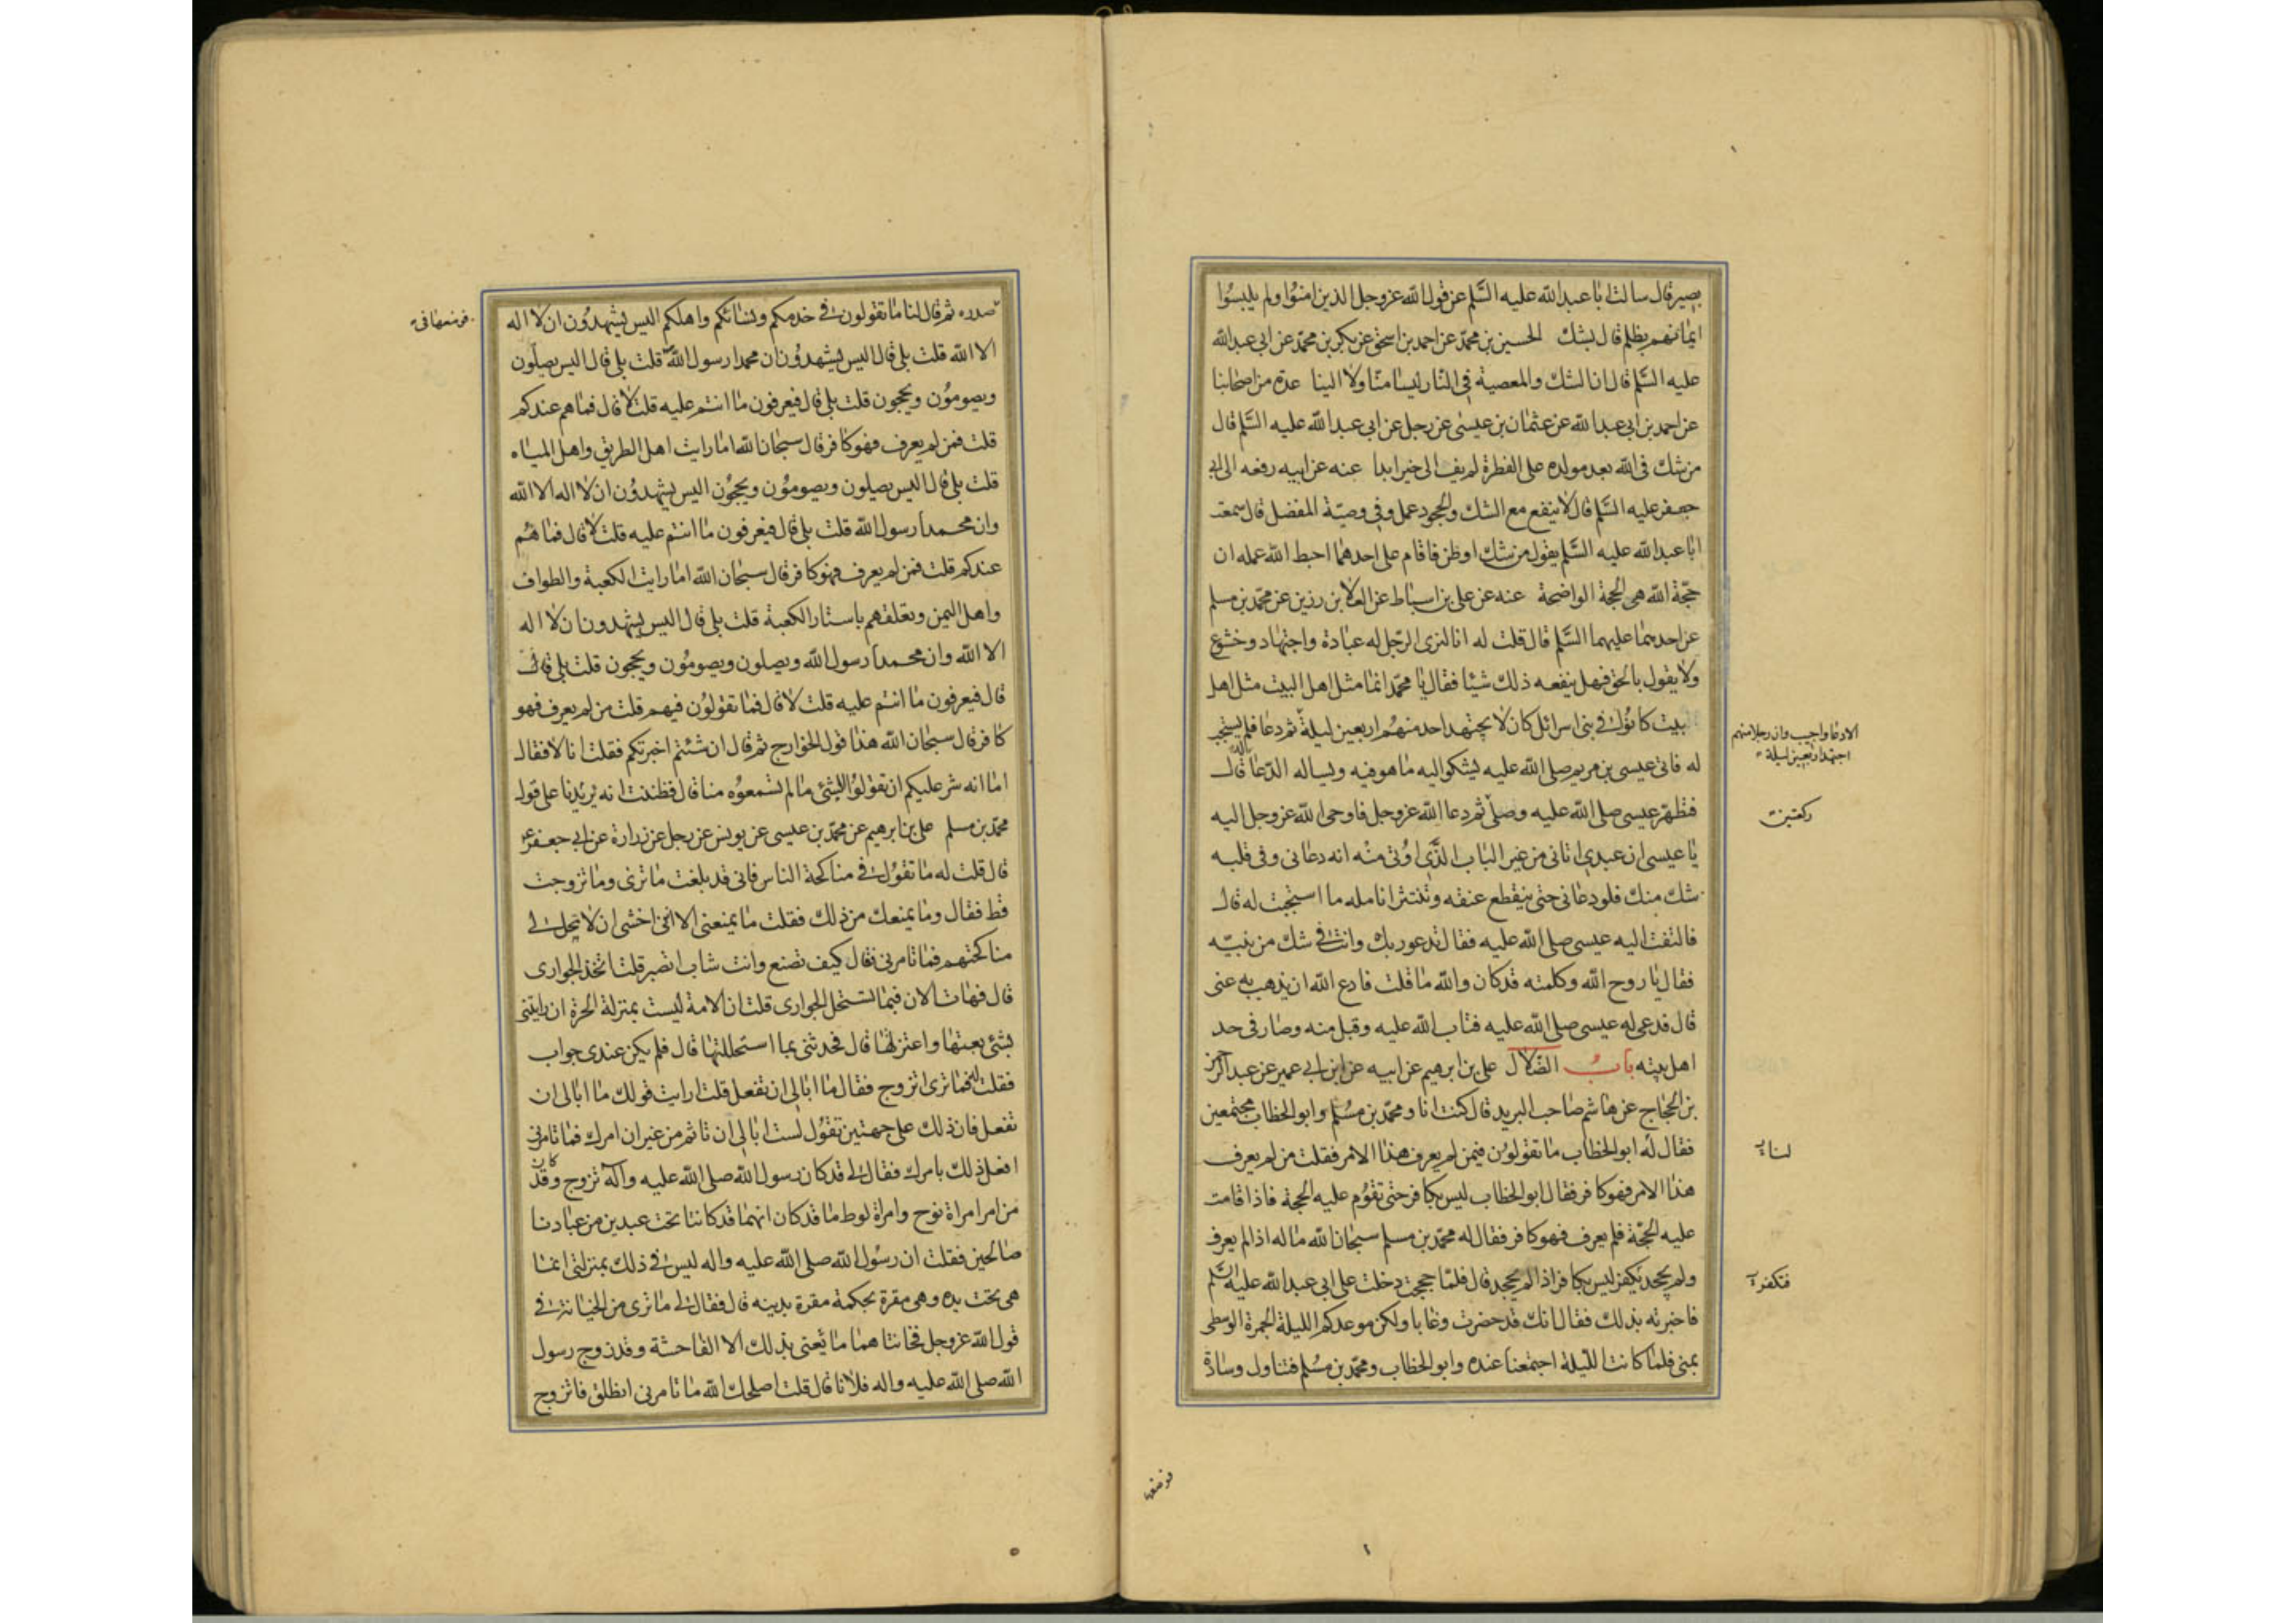 بصير قال سالت ابا عبد الله عليه السّلم عن قول الله عزوجل الذين امنوا ولم يلبسوا
ايمانهم بظلم قال بشك الحسين بن محمّد عن احمد بن اسحق عن بكر بن محمّد عن ابى عبد الله
عليه السّلم قال ان الشك والمعصية فى النار ليسا منّا ولا الينا عدة من اصحابنا
عن احمد بن ابى عبد الله عن عثمان بن عيسى عن رجل عن ابى عبد الله عليه السّلم قال
من شك فى الله بعد مولده على الفطرة لم يف الى خير ابدا عنه عن ابيه رفعه الى ابى
جعفر عليه السّلم قال لا ينفع مع الشك والجحود عمل وفى وصيّة المفضل قال سمعت
ابا عبد الله عليه السّلم يقول من شك او ظن فاقام على احدهما احبط الله عمله ان
حجّة الله هى الحجة الواضحة عنه عن على بن اسباط عن العلا بن رزين عن محمّد بن مسلم
عن احدهما عليهما السّلم قال قلت له انا لنرى الرّجل له عبادة واجتهاد وخشوع
ولا يقول بالحق فهل ينفعه ذلك شيئا فقال يا محمّد انما مثل اهل البيت مثل اهل
بيت كانوا فى بنى اسرائل كان لا يجتهد احد منهم اربعين ليلة ثم دعا فلم يستجب
الا دعا واجيب وان رجلا منهم
اجتهد اربعين ليلة
له فاتى عيسى بن مريم صلى الله عليه يشكو اليه ما هو فيه ويساله الدّعا قال
فتطهّر عيسى صلى الله عليه وصلّى ثم دعا الله عزوجل فاوحى الله عزوجل اليه
ركعتين
يا عيسى ان عبدى اتانى من غير الباب الذى اوتى منه انه دعانى وفى قلبه
شك منك فلو دعانى حتى ينقطع عنقه وتنتثر انامله ما استجبت له قال
فالتفت اليه عيسى صلى الله عليه فقال تدعو ربك وانت فى شك من نبيّه
فقال يا روح الله وكلمته قد كان والله ما قلت فادع الله ان يذهب به عنى
قال فدعى له عيسى صلى الله عليه فتاب الله عليه وقبل منه وصار فى حد
اهل بيته باب الضّلال على بن ابرهيم عن ابيه عن ابن ابى عمير عن عبد الرحمن
بن الحجاج عن هاشم صاحب البريد قال كنت انا ومحمّد بن مسلم وابو الخطاب مجتمعين
فقال له ابو الخطاب ما تقولون فيمن لم يعرف هذا الامر فقلت من لم يعرف
لنا
هذا الامر فهو كافر فقال ابو الخطاب ليس بكافر حتى تقوم عليه الحجة فاذا قامت
عليه الحجّة فلم يعرف فهو كافر فقال له محمّد بن مسلم سبحان الله ما له اذا لم يعرف
ولم يجحد يكفر ليس بكافر اذا لم يجحد قال فلمّا حججت دخلت على ابى عبد الله عليه السّلم
فاخبرته بذلك فقال انك قد حضرت وغابا ولكن موعدكم الليلة الجمرة الوسطى
بمنى فلما كانت الليلة اجتمعنا عنده وابو الخطاب ومحمّد بن مسلم فتناول وسادة
صدره ثم قال لنا ما تقولون فى خدمكم ونسائكم واهلكم اليس يشهدون ان لا اله
الا الله قلت بلى قال اليس يشهدون ان محمدا رسول الله قلت بلى قال اليس يصلّون
ويصومون ويحجون قلت بلى قال فيعرفون ما انتم عليه قلت لا قال فما هم عندكم
قلت فمن لم يعرف فهو كافر قال سبحان الله اما رايت اهل الطريق واهل المياه
قلت بلى قال اليس يصلون ويصومون ويحجون اليس يشهدون ان لا اله الا الله
وان محمدا رسول الله قلت بلى قال فيعرفون ما انتم عليه قلت لا قال فما هم
عندكم قلت فمن لم يعرف فهو كافر قال سبحان الله اما رايت الكعبة والطواف
واهل اليمن وتعلقهم باستار الكعبة قلت بلى قال اليس يشهدون ان لا اله
الا الله وان محمدا رسول الله ويصلون ويصومون ويحجون قلت بلى قال
قال فيعرفون ما انتم عليه قلت لا قال فما تقولون فيهم قلت من لم يعرف فهو
كافر قال سبحان الله هذا قول الخوارج ثم قال ان شئتم اخبرتكم فقلت انا لا فقال
اما انه شر عليكم ان تقولوا بشئ ما لم تسمعوه منا قال فظننت انه يريدنا على قول
محمّد بن مسلم على بن ابرهيم عن محمّد بن عيسى عن يونس عن رجل عن زرارة عن ابى جعفر
قال قلت له ما تقول فى مناكحة الناس فانى قد بلغت ما ترى وما تزوجت
قط فقال وما يمنعك من ذلك فقلت ما يمنعنى الا اننى اخشى ان لا يحل لى
مناكحتهم فما تامرنى فقال كيف تصنع وانت شاب اتصبر قلت اتخذ الجوارى
قال فهات الان فبما تستحل الجوارى قلت ان الامة ليست بمنزلة الحرة ان رابتنى
بشئ بعتها واعتزلتها قال فحدثنى بما استحللتها قال فلم يكن عندى جواب
فقلت له فما ترى اتزوج فقال ما ابالى ان تفعل قلت ارايت قولك ما ابالى ان
تفعل فان ذلك على جهتين تقول لست ابالى ان تاثم من غير ان امرك فما تامرنى
افعل ذلك بامرك فقال لى قد كان رسول الله صلى الله عليه وآله تزوج وقد كان
من امر امراة نوح وامراة لوط ما قد كان انهما قد كانتا تحت عبدين من عبادنا
صالحين فقلت ان رسول الله صلى الله عليه واله ليس فى ذلك بمنزلتى انما
هى تحت يده وهى مقرة بحكمة مقرة بدينه قال فقال لى ما ترى من الخيانة فى
قول الله عزوجل فخانتاهما ما يعنى بذلك الا الفاحشة وقد زوج رسول
الله صلى الله عليه واله فلانا قال قلت اصلحك الله ما تامرنى انطلق فاتزوج